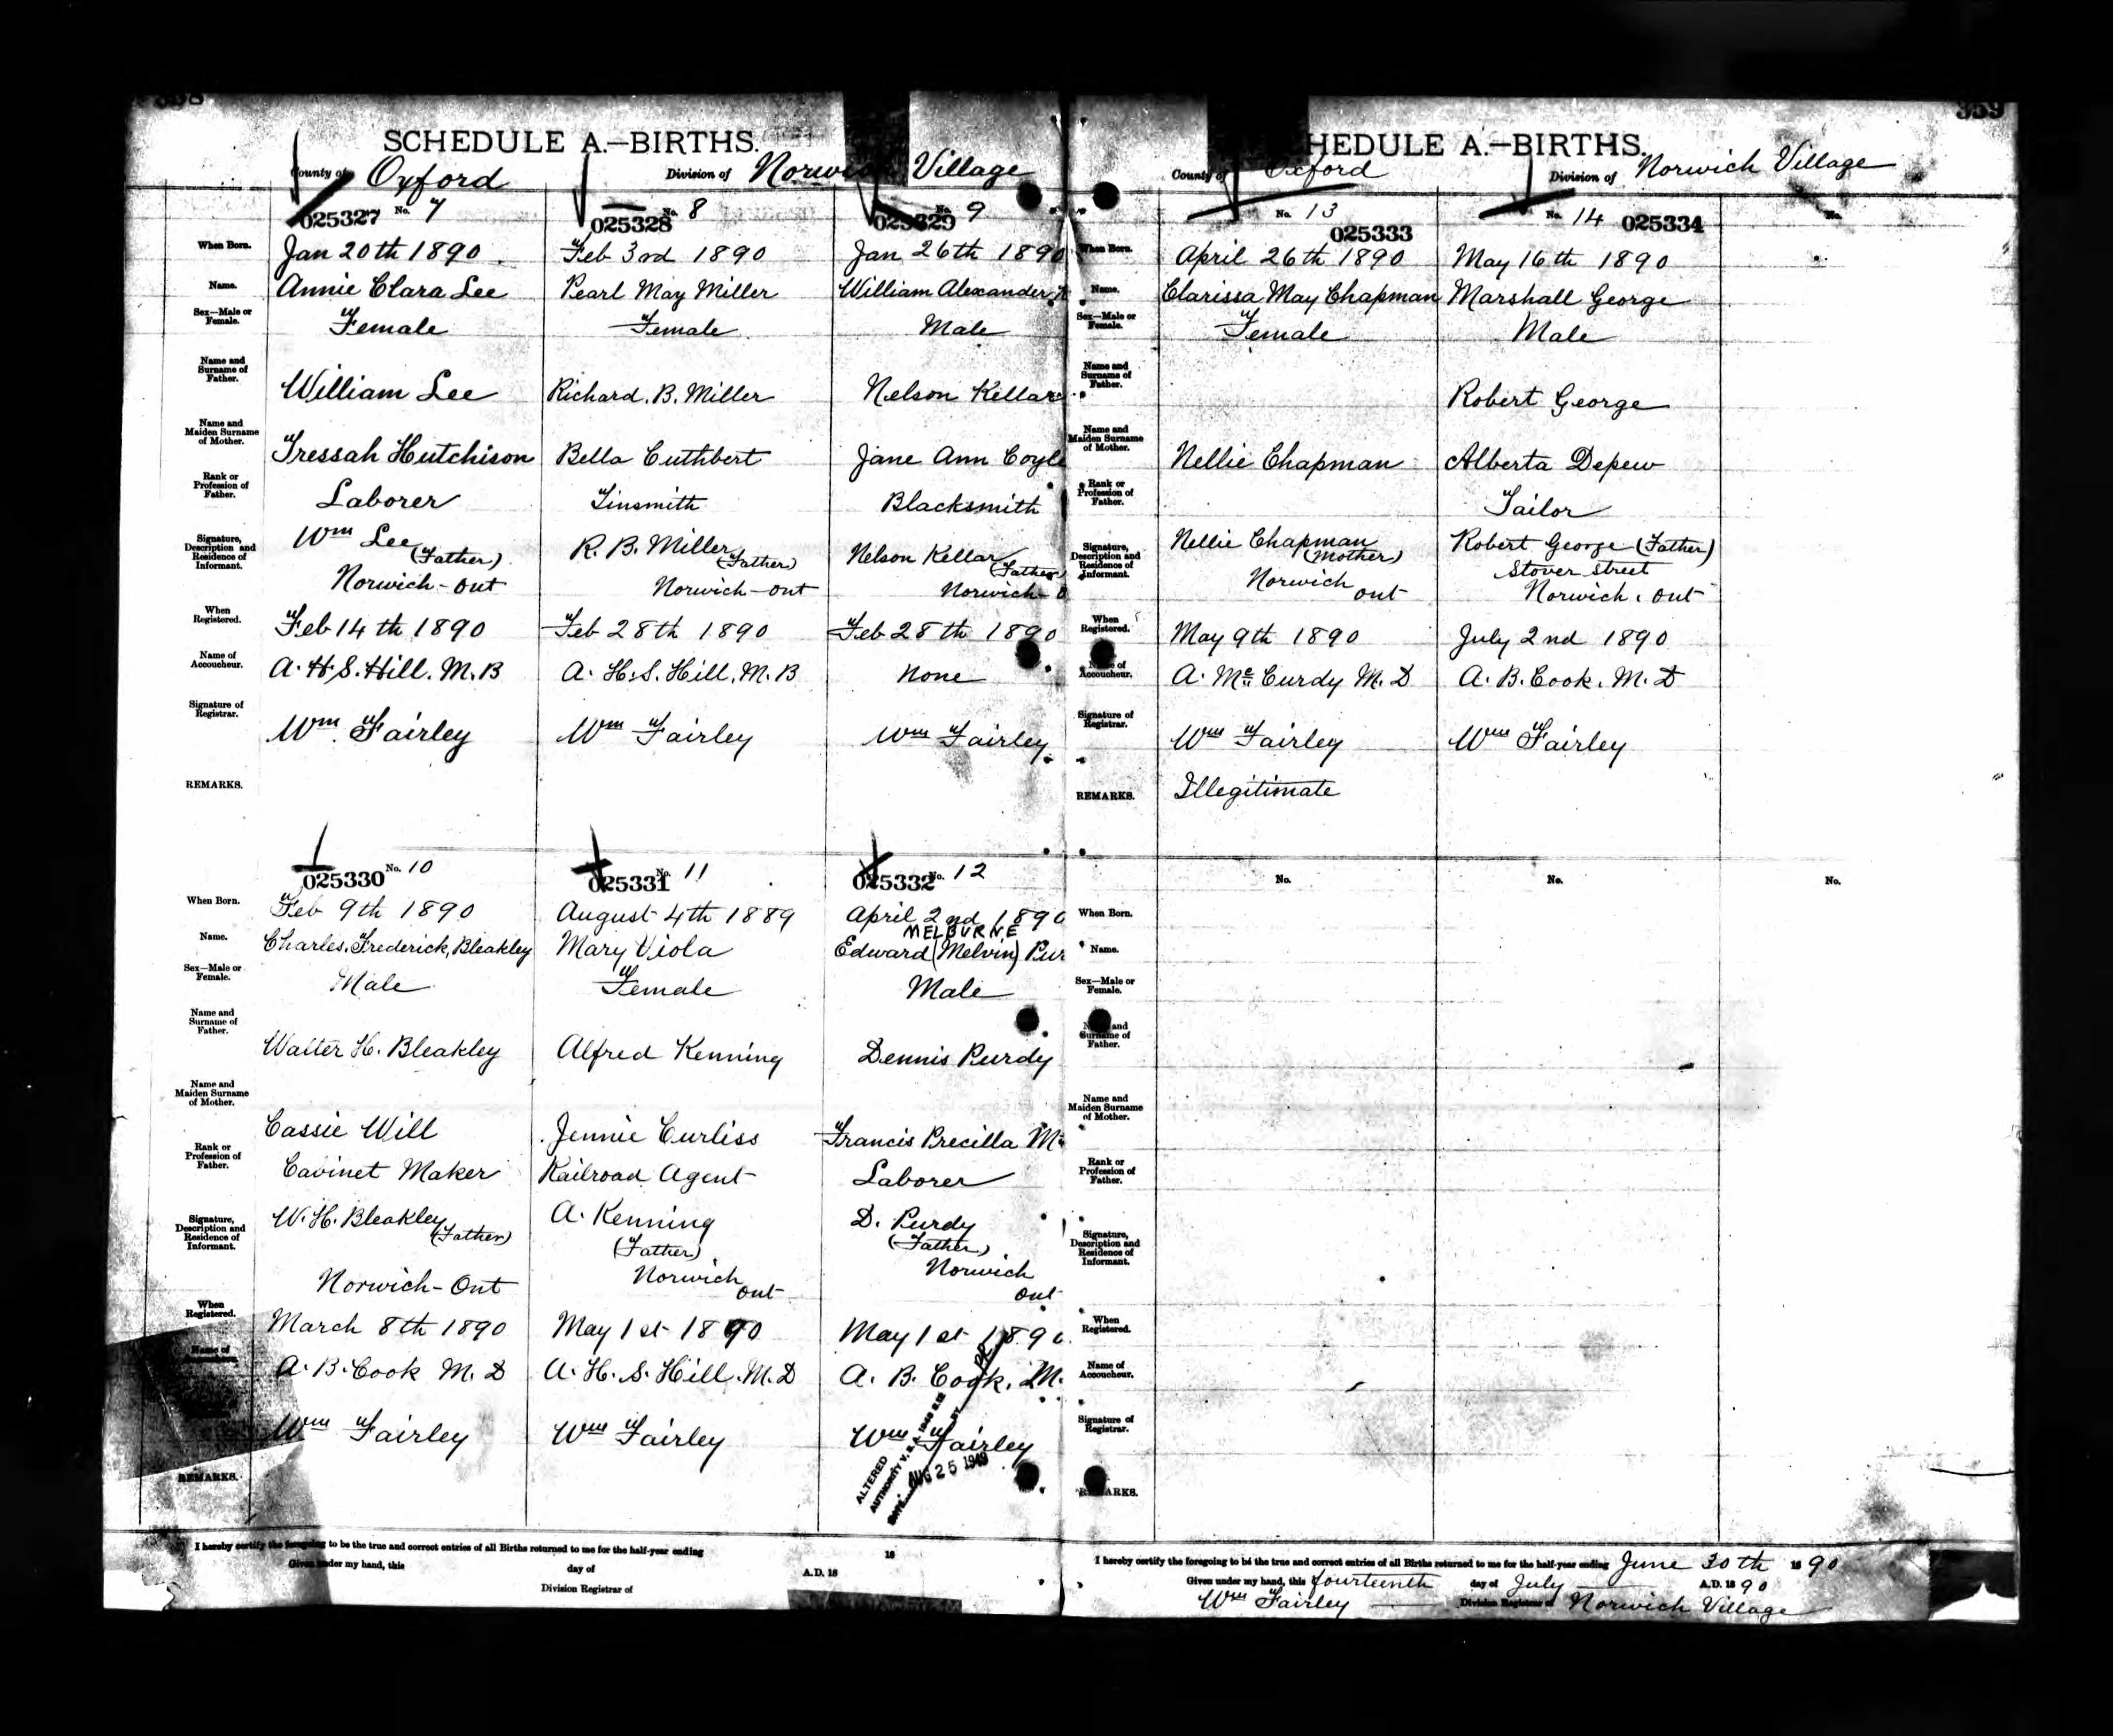 359
SCHEDULE A.—BIRTHS.
County of Oxford Division of Norwich Village
025327 No. 7 025328 No. 8 025329 No. 9
When Born. Jan 20th 1890 Feb 3rd 1890 Jan 26th 1890
Name. Annie Clara Lee Pearl May Miller William Alexander
Sex—Male or Female. Female Female Male
Name and Surname of Father. William Lee Richard. B. Miller Nelson Kellar
Name and Maiden Surname of Mother. Tressah Hutchison Bella Cuthbert Jane Ann Coyle
Rank or Profession of Father. Laborer Tinsmith Blacksmith
Signature, Description and Residence of Informant. Wm Lee (Father) R. B. Miller (Father) Nelson Kellar (Father)
Norwich - Ont Norwich - Ont Norwich - O
When Registered. Feb 14th 1890 Feb 28th 1890 Feb 28th 1890
Name of Accoucheur. A. H. S. Hill. M. B A. H. S. Hill. M. B None
Signature of Registrar. Wm Fairley Wm Fairley Wm Fairley
REMARKS.
025330 No. 10 025331 No. 11 025332 No. 12
When Born. Feb 9th 1890 August 4th 1889 April 2nd 1890
MELBURNE
Name. Charles. Frederick, Bleakley Mary Viola Edward (Melvin) Pur
Sex—Male or Female. Male Female Male
Name and Surname of Father. Walter H. Bleakley Alfred Kenning Dennis Purdy
Name and Maiden Surname of Mother. Cassie Will Jennie Curliss Francis Precilla Mc
Rank or Profession of Father. Cavinet Maker Railroad Agent Laborer
Signature, Description and Residence of Informant. W. H. Bleakley (Father) A. Kenning (Father) D. Purdy (Father)
Norwich - Ont Norwich Ont Norwich Ont
When Registered. March 8th 1890 May 1st 1890 May 1st 1890
Name of Accoucheur. A. B. Cook M. D A. H. S. Hill. M. D A. B. Cook. M.
Wm Fairley Wm Fairley Wm Fairley
ALTERED
AUTHORITY V.S.A. 1948
DATE AUG 25 1949
REMARKS.
I hereby certify the foregoing to be the true and correct entries of all Births returned to me for the half-year ending 18
Given under my hand, this day of A.D. 18
Division Registrar of
SCHEDULE A.—BIRTHS.
County of Oxford Division of Norwich Village
No. 13 025333 No. 14 025334 No.
When Born. April 26th 1890 May 16th 1890
Name. Clarissa May Chapman Marshall George
Sex—Male or Female. Female Male
Name and Surname of Father. Robert George
Name and Maiden Surname of Mother. Nellie Chapman Alberta Depew
Rank or Profession of Father. Tailor
Signature, Description and Residence of Informant. Nellie Chapman (Mother) Robert George (Father)
Stover Street
Norwich Ont Norwich. Ont
When Registered. May 9th 1890 July 2nd 1890
Name of Accoucheur. A. McCurdy M. D A. B. Cook. M. D
Signature of Registrar. Wm Fairley Wm Fairley
REMARKS. Illegitimate
No. No. No.
When Born.
Name.
Sex—Male or Female.
Name and Surname of Father.
Name and Maiden Surname of Mother.
Rank or Profession of Father.
Signature, Description and Residence of Informant.
When Registered.
Name of Accoucheur.
Signature of Registrar.
REMARKS.
I hereby certify the foregoing to be the true and correct entries of all Births returned to me for the half-year ending June 30th 1890
Given under my hand, this fourteenth day of July A.D. 1890
Wm Fairley Division Registrar of Norwich Village